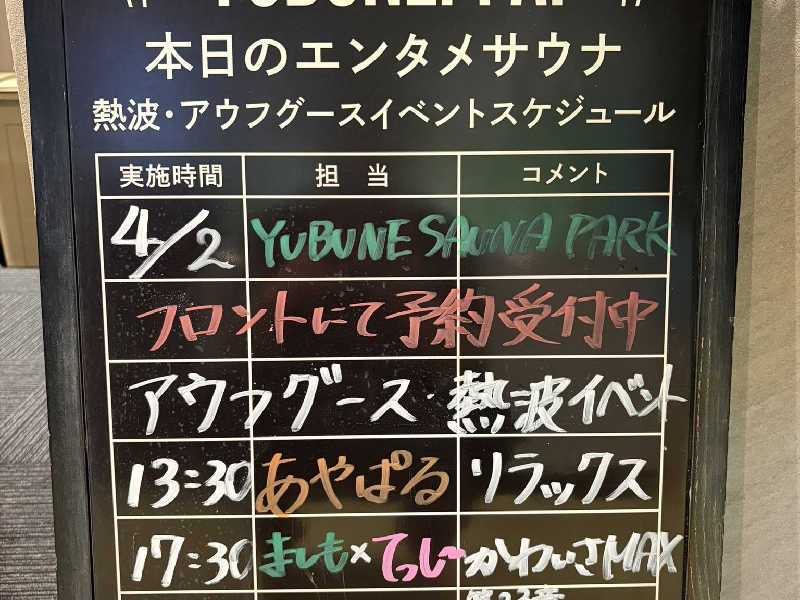 本日のエンタメサウナ
熱波・アウフグースイベントスケジュール
実施時間 担当 コメント
4/2 YUBUNE SAUNA PARK
フロントにて予約受付中
アウフグース・熱波イベント
13:30 あやぱる リラックス
17:30 ましも×てっじー かわいさMAX